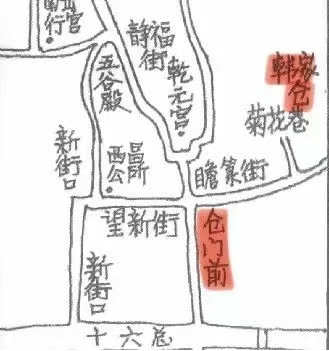 静福街
五谷殿
乾元宫
韩家仓
菊花巷
新街口
西昌公所
望新街
仓门前
新街口
十六总